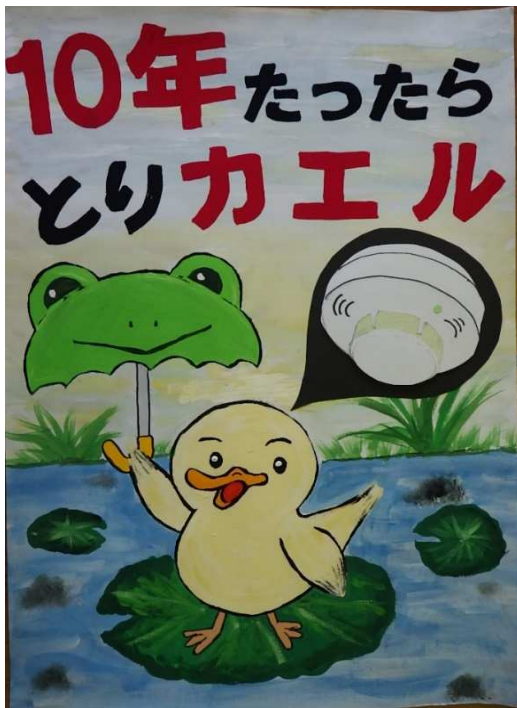 10年たったら
とりカエル